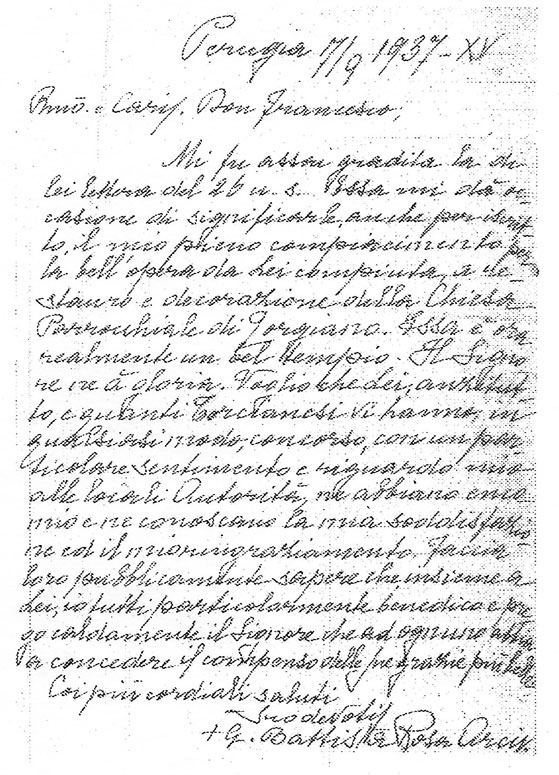 Perugia 17/9 1937-XV
Rmo. e Cariss. Don Francesco,
Mi fu assai gradita la di
lei lettera del 26 u. s. Essa mi dà oc-
casione di significarLe, anche per iscrit-
to, il mio pieno compiacimento per
la bell'opera da Lei compiuta, a re-
stauro e decorazione della Chiesa
Parrocchiale di Torgiano. Essa è ora
realmente un bel tempio. Il Signo
re ne à gloria. Voglio che Lei, anzitut-
to, e quanti Torcianesi vi hanno, in
qualsiasi modo, concorso, con un par-
ticolare sentimento e riguardo mio
alle locali Autorità, ne abbiano enco
mio e ne conoscano la mia soddisfazio
ne ed il mio ringraziamento. Faccia
loro pubblicamente sapere che, insieme a
Lei, io tutti particolarmente benedico e pre
go caldamente il Signore che ad ognuno abbia
a concedere il compenso delle sue grazie più belle
Coi più cordiali saluti
Suo devotis
+ G. Battista Rosa Arciv.